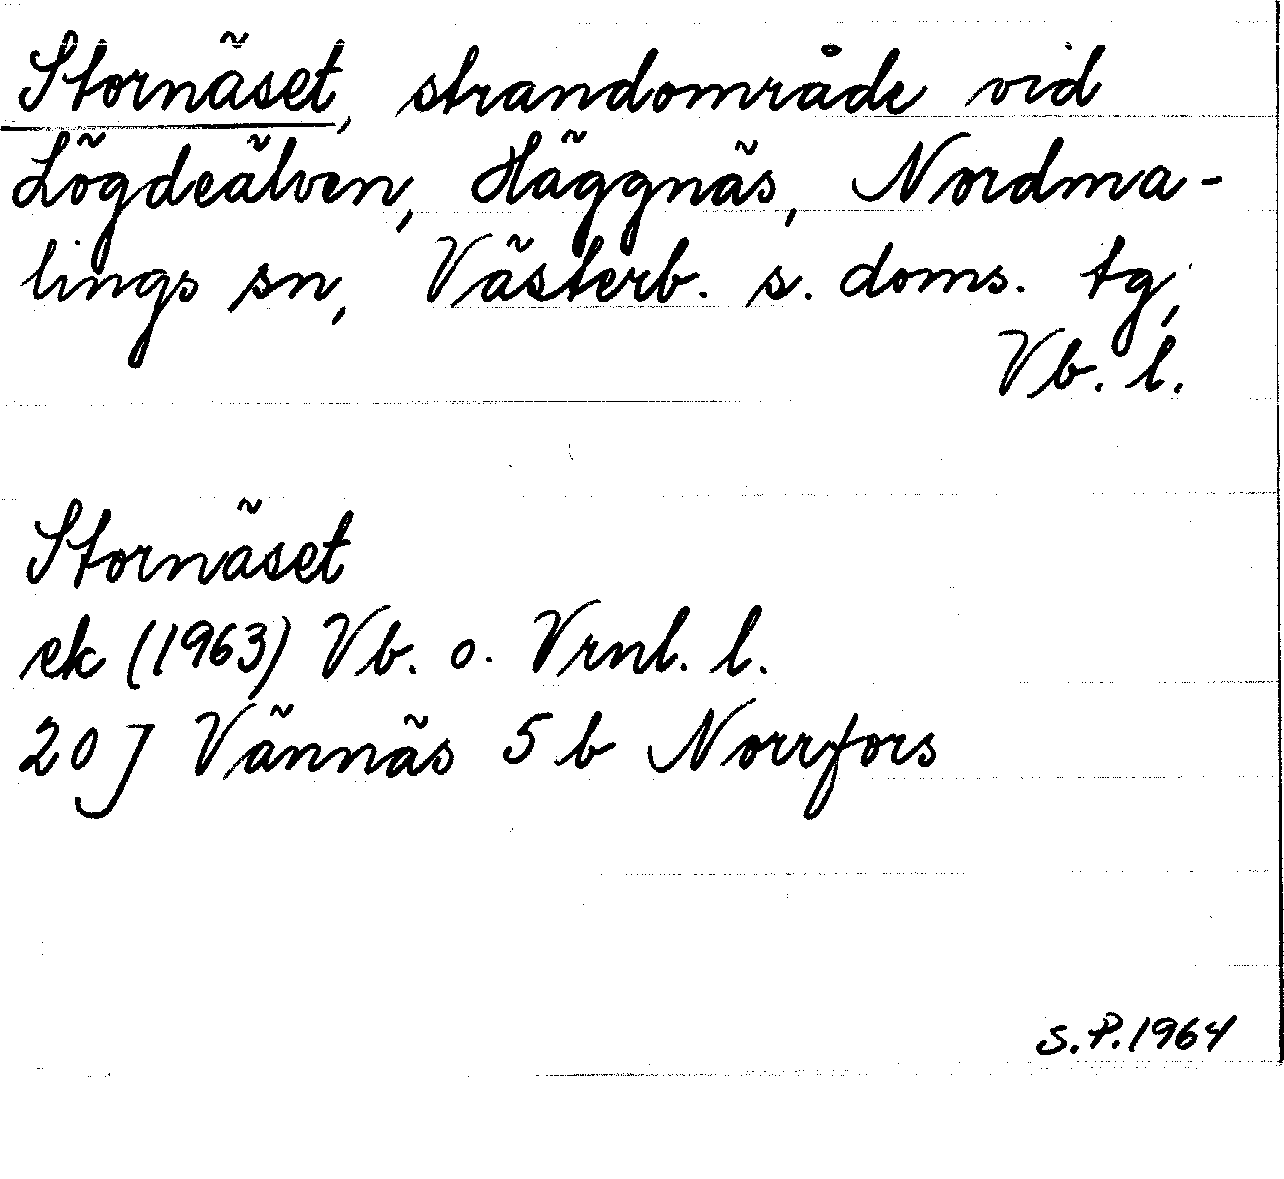 Stornäset, strandområde vid
Lögdeälven, Häggnäs, Nordma-
lings sn, Västerb. s. doms. tg,
Vb. l.
Stornäset
ek (1963) Vb. o. Vrnl. l.
20 J Vännäs 5 b Norrfors
S.P. 1964